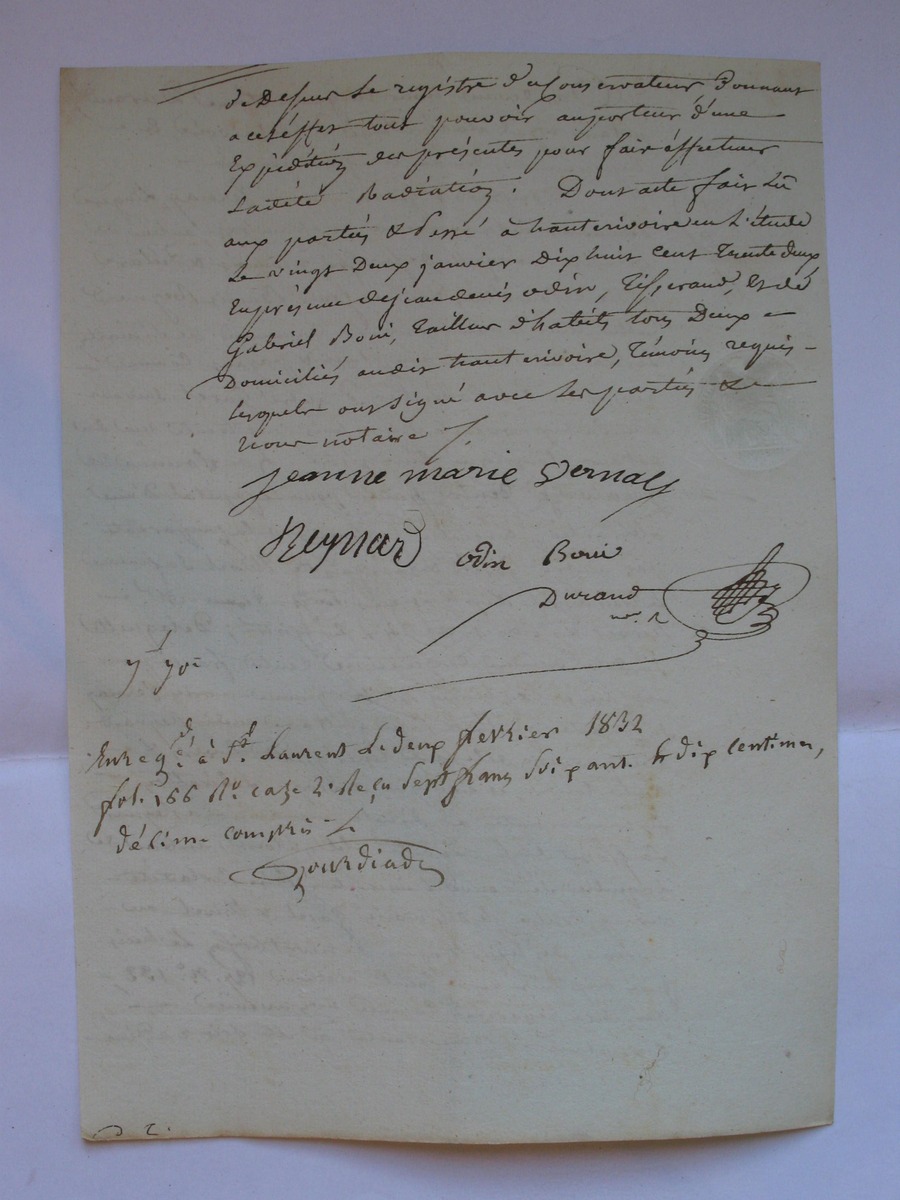 de dessus le registre du Conservateur Donnant
a cet éffet tout pouvoir au porteur d'une
Expéditión des présentes pour fair éffectuer
Ladite Radiatión. Dont acte fair Lu
aux partiés & Passé à hauterivoire en L'étude
Le vingt Deux janvier Dix huit cent Trente deux,
En présence de jean denis odin, Tisserand, Et de
Gabriel Boni, Tailleur d'habits tous Deux
Domiciliés audit hauterivoire, Témoins requis
lesquels ont signé avec Les partiés &
nous notaire
jeanne marie Vernay
Reynard
odin Boni
Durand
nre. R
Enregé. à St. Laurent Le deux fevrier 1832
fol. 166 Ro. case 2. Reçu Sept francs Soixante & dix centimes,
décime compris